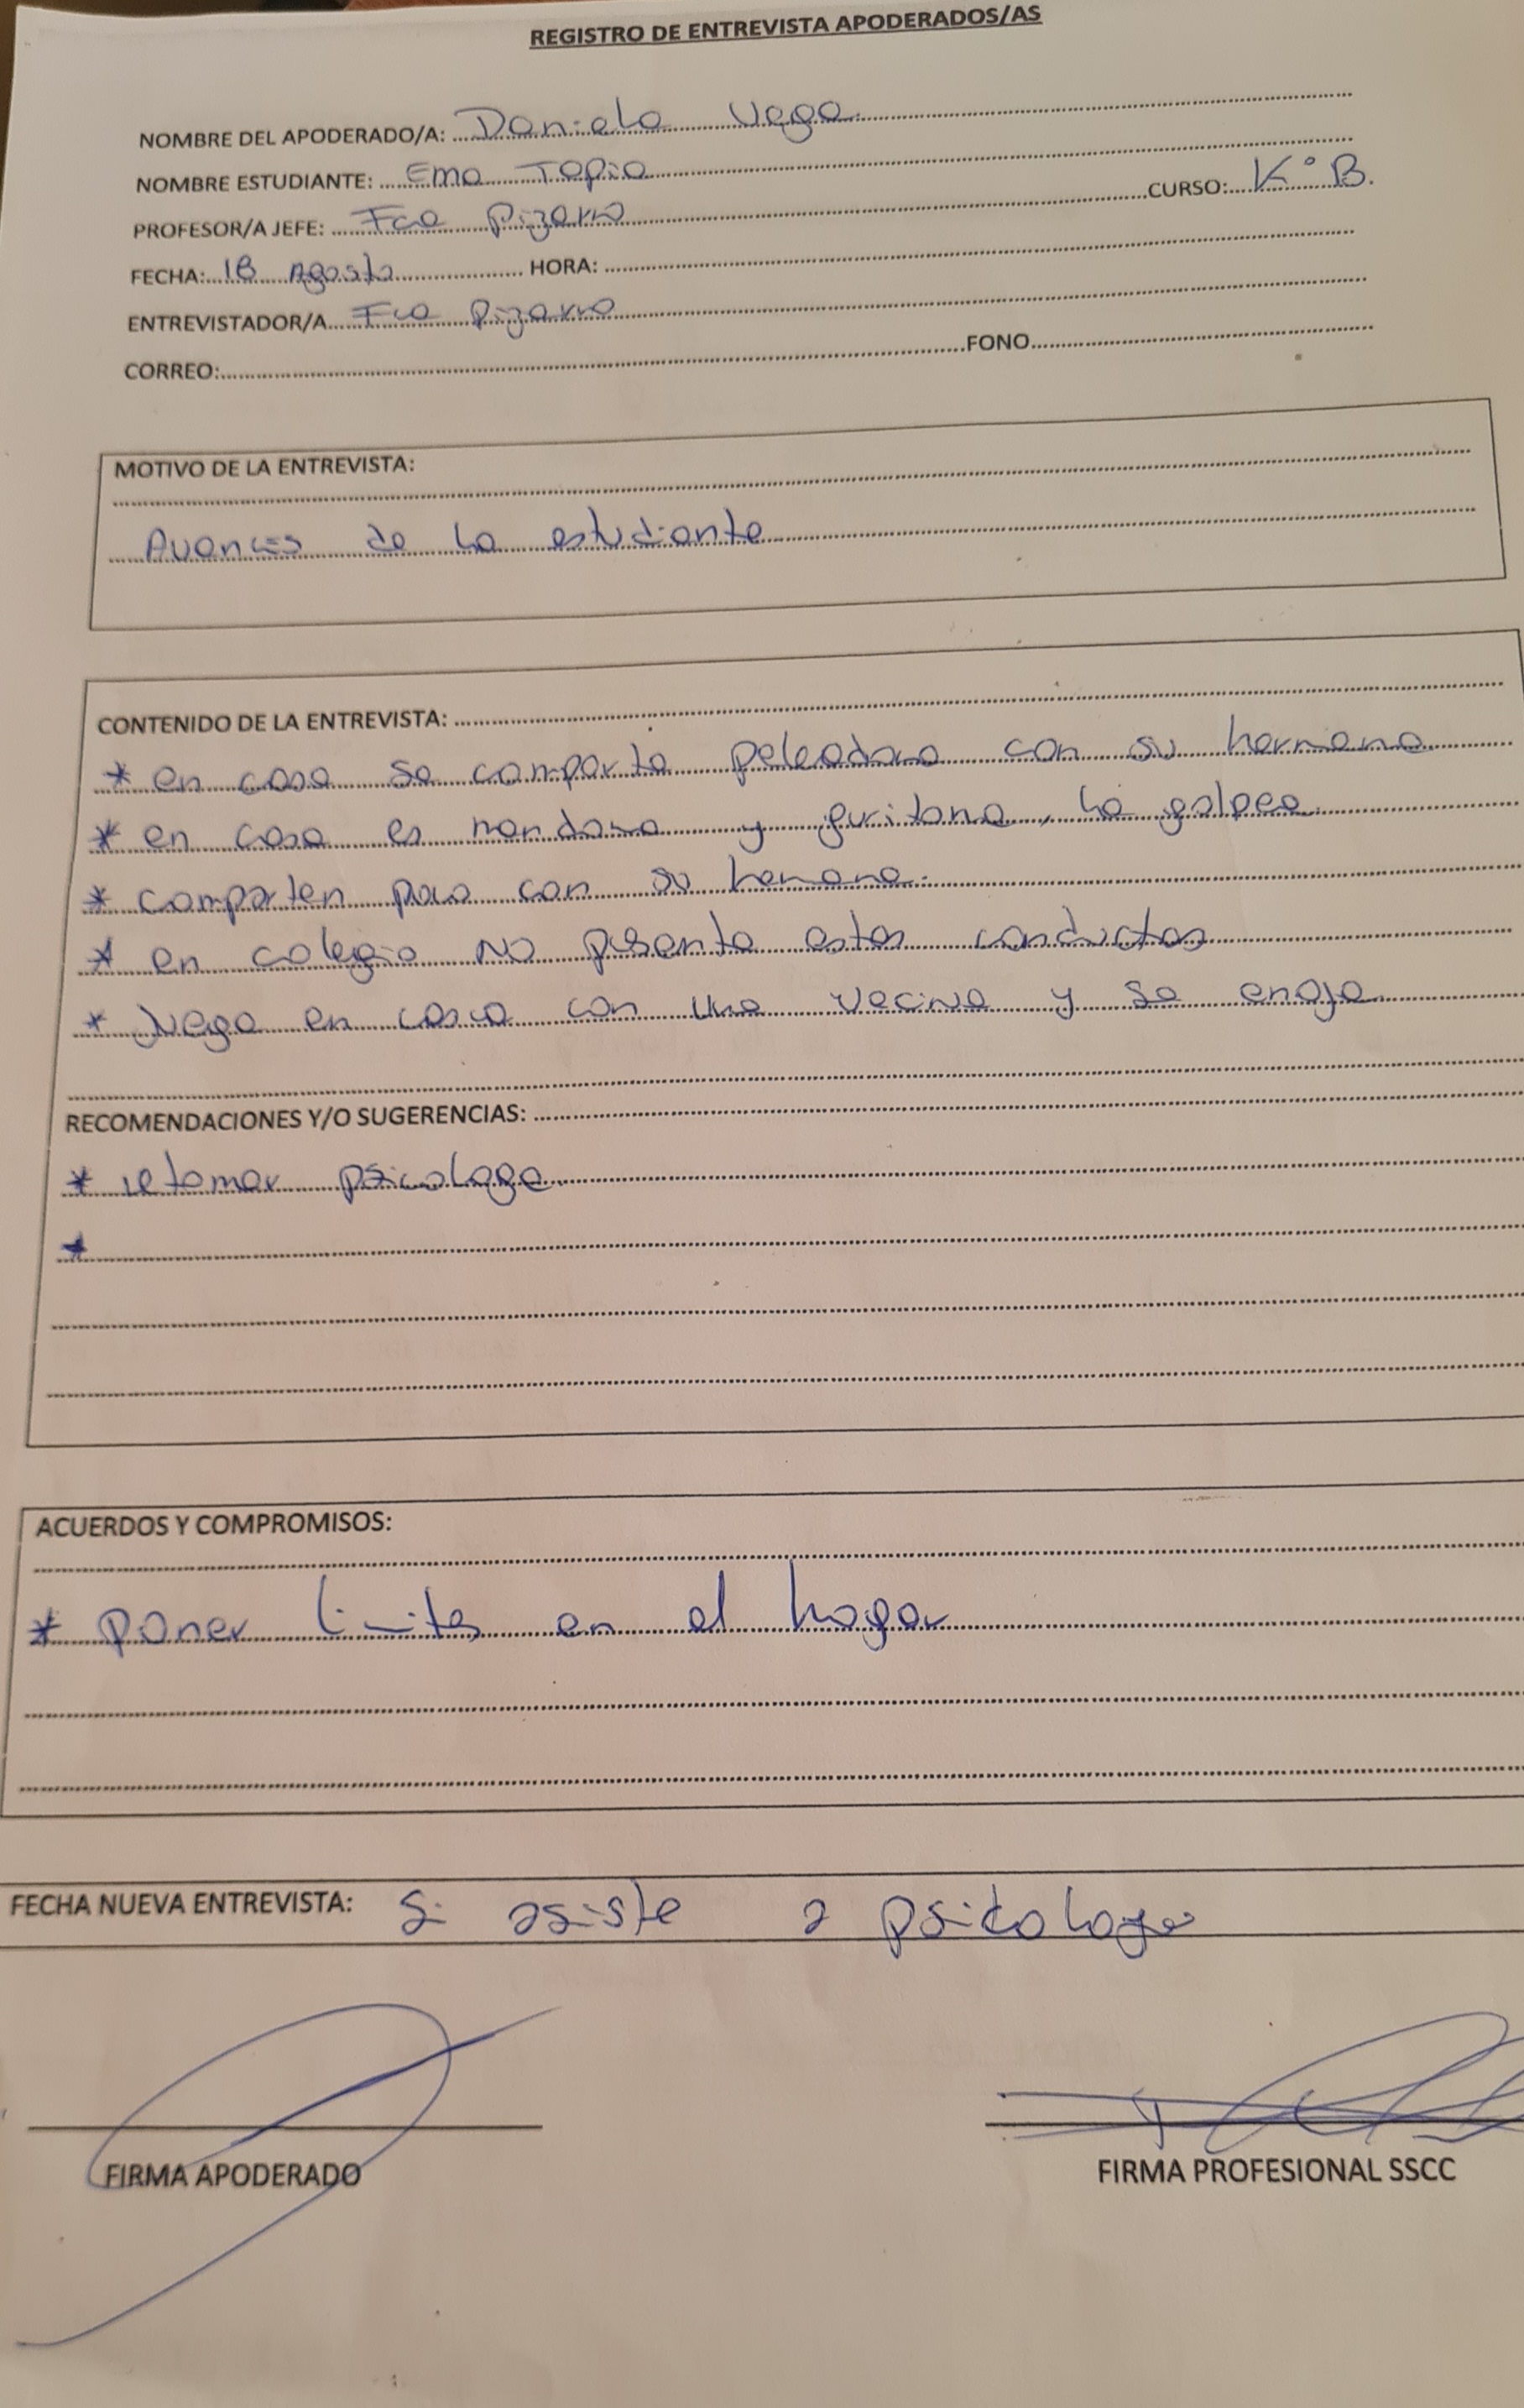 REGISTRO DE ENTREVISTA APODERADOS/AS
NOMBRE DEL APODERADO/A: Daniela Vega
NOMBRE ESTUDIANTE: Ema Tapia
CURSO: K°B.
PROFESOR/A JEFE: Fca Pizarro
FECHA: 18 Agosto HORA:
ENTREVISTADOR/A Fca Pizarro
CORREO: FONO
MOTIVO DE LA ENTREVISTA:
Avances de la estudiante
CONTENIDO DE LA ENTREVISTA:
* en casa se comporta peleadora con su hermana
* en casa es mandona y gritona, la golpea.
* comparten poco con su hermana.
* en colegio NO presenta estas conductas
* Juega en casa con una vecina y se enoja
RECOMENDACIONES Y/O SUGERENCIAS:
* retomar psicologa
*
ACUERDOS Y COMPROMISOS:
* poner limites en el hogar
FECHA NUEVA ENTREVISTA: Si asiste a psicologa
FIRMA APODERADO
FIRMA PROFESIONAL SSCC